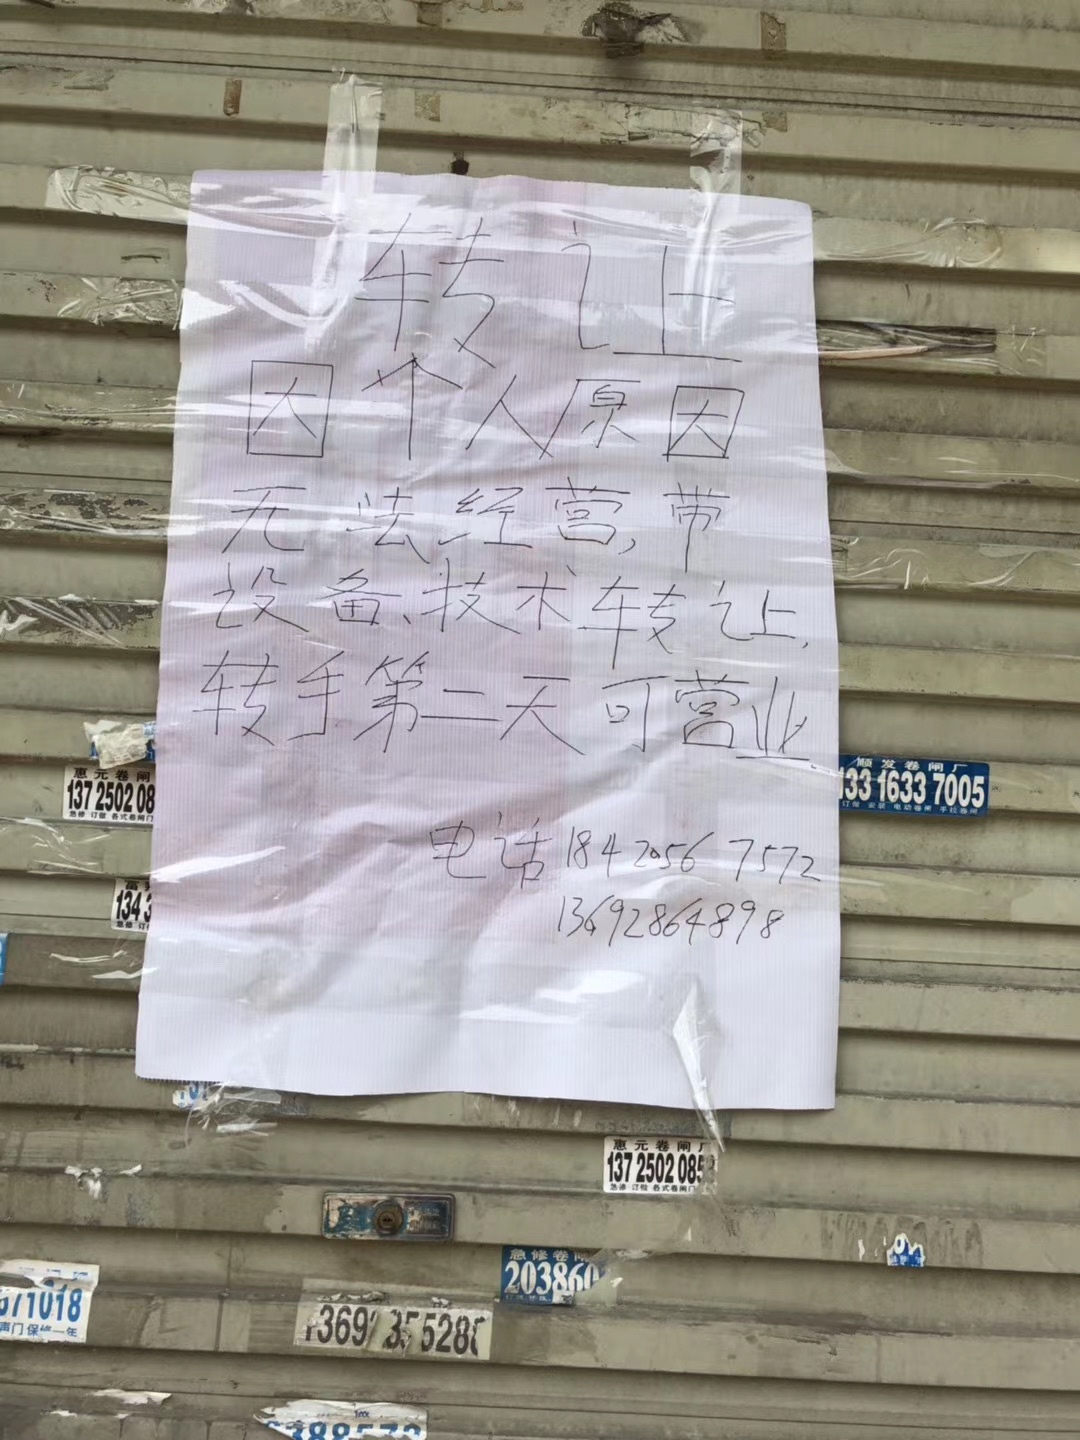 转让
因个人原因
无法经营,带
设备、技术转让,
转手第二天可营业
电话18420567572
13692864898
惠元卷闸
137250208
急修 订做 各式卷闸门
顺发卷闸厂
13316337005
订做 安装 电动卷闸 手拉卷闸
134
惠元卷闸厂
137250208
急修 订做 各式卷闸门
急修卷闸
203860
71018
闸门保修一年